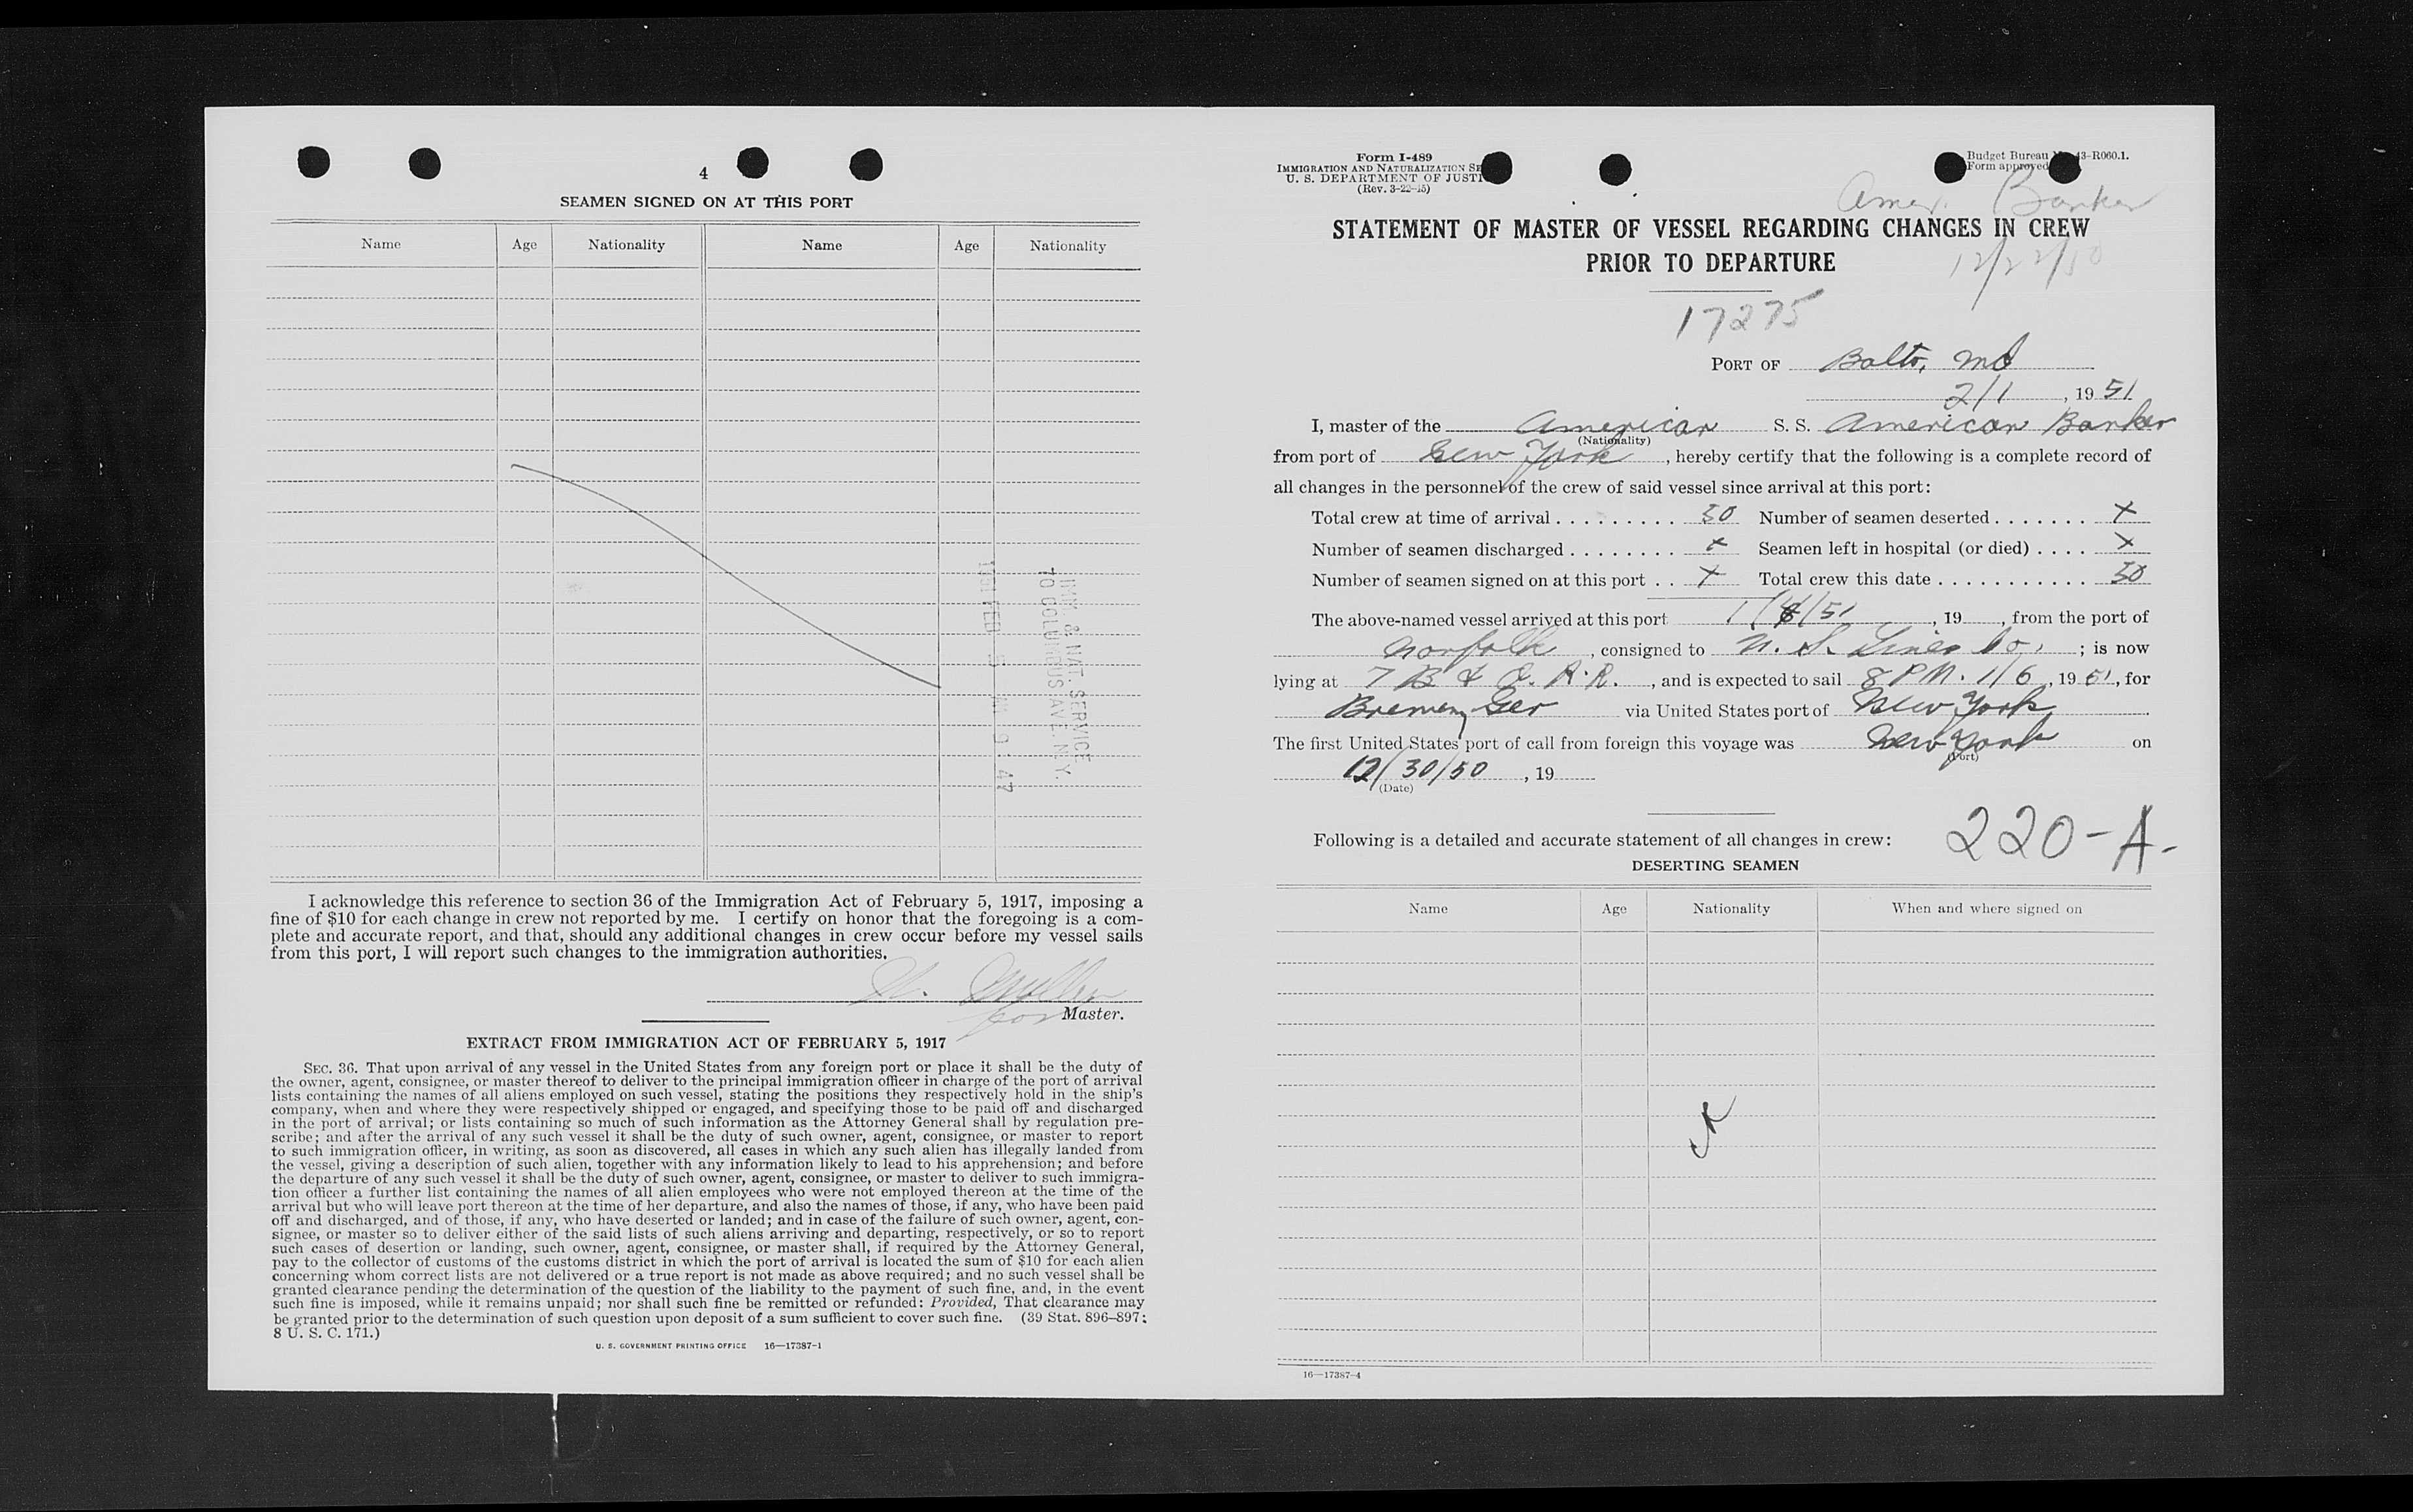 4
SEAMEN SIGNED ON AT THIS PORT
Name Age Nationality Name Age Nationality
IMM. & NAT. SERVICE
70 COLUMBUS AVE. N.Y.
1951 FEB 5 AM 9 47
I acknowledge this reference to section 36 of the Immigration Act of February 5, 1917, imposing a
fine of $10 for each change in crew not reported by me. I certify on honor that the foregoing is a com-
plete and accurate report, and that, should any additional changes in crew occur before my vessel sails
from this port, I will report such changes to the immigration authorities.
for Master.
EXTRACT FROM IMMIGRATION ACT OF FEBRUARY 5, 1917
SEC. 36. That upon arrival of any vessel in the United States from any foreign port or place it shall be the duty of
the owner, agent, consignee, or master thereof to deliver to the principal immigration officer in charge of the port of arrival
lists containing the names of all aliens employed on such vessel, stating the positions they respectively hold in the ship's
company, when and where they were respectively shipped or engaged, and specifying those to be paid off and discharged
in the port of arrival; or lists containing so much of such information as the Attorney General shall by regulation pre-
scribe; and after the arrival of any such vessel it shall be the duty of such owner, agent, consignee, or master to report
to such immigration officer, in writing, as soon as discovered, all cases in which any such alien has illegally landed from
the vessel, giving a description of such alien, together with any information likely to lead to his apprehension; and before
the departure of any such vessel it shall be the duty of such owner, agent, consignee, or master to deliver to such immigra-
tion officer a further list containing the names of all alien employees who were not employed thereon at the time of the
arrival but who will leave port thereon at the time of her departure, and also the names of those, if any, who have been paid
off and discharged, and of those, if any, who have deserted or landed; and in case of the failure of such owner, agent, con-
signee, or master so to deliver either of the said lists of such aliens arriving and departing, respectively, or so to report
such cases of desertion or landing, such owner, agent, consignee, or master shall, if required by the Attorney General,
pay to the collector of customs of the customs district in which the port of arrival is located the sum of $10 for each alien
concerning whom correct lists are not delivered or a true report is not made as above required; and no such vessel shall be
granted clearance pending the determination of the question of the liability to the payment of such fine, and, in the event
such fine is imposed, while it remains unpaid; nor shall such fine be remitted or refunded: Provided, That clearance may
be granted prior to the determination of such question upon deposit of a sum sufficient to cover such fine. (39 Stat. 896–897;
8 U. S. C. 171.)
U. S. GOVERNMENT PRINTING OFFICE 16—17387-1
Form I-489
IMMIGRATION AND NATURALIZATION SE
U. S. DEPARTMENT OF JUSTI
(Rev. 3-22-45)
Budget Bureau 43-R060.1.
Form approved
Amer. Banker
STATEMENT OF MASTER OF VESSEL REGARDING CHANGES IN CREW
PRIOR TO DEPARTURE
12/22/50
17275
PORT OF Balto, Md
2/1, 1951
I, master of the American S. S. American Banker
(Nationality)
from port of New York, hereby certify that the following is a complete record of
all changes in the personnel of the crew of said vessel since arrival at this port:
Total crew at time of arrival . . . . . . . . . 50 Number of seamen deserted . . . . . . . X
Number of seamen discharged . . . . . . . . X Seamen left in hospital (or died) . . . . X
Number of seamen signed on at this port . . X Total crew this date . . . . . . . . . . . 50
The above-named vessel arrived at this port 1/ /51, 19 , from the port of
Norfolk, consigned to U. S. Lines Co.; is now
lying at 7 B & O. R.R., and is expected to sail 8 PM. 1/6, 1951, for
Bremen, Ger via United States port of New York
The first United States port of call from foreign this voyage was New York on
(Port)
12/30/50, 19
(Date)
Following is a detailed and accurate statement of all changes in crew:
220-A-
DESERTING SEAMEN
Name Age Nationality When and where signed on
X
16—17387-4